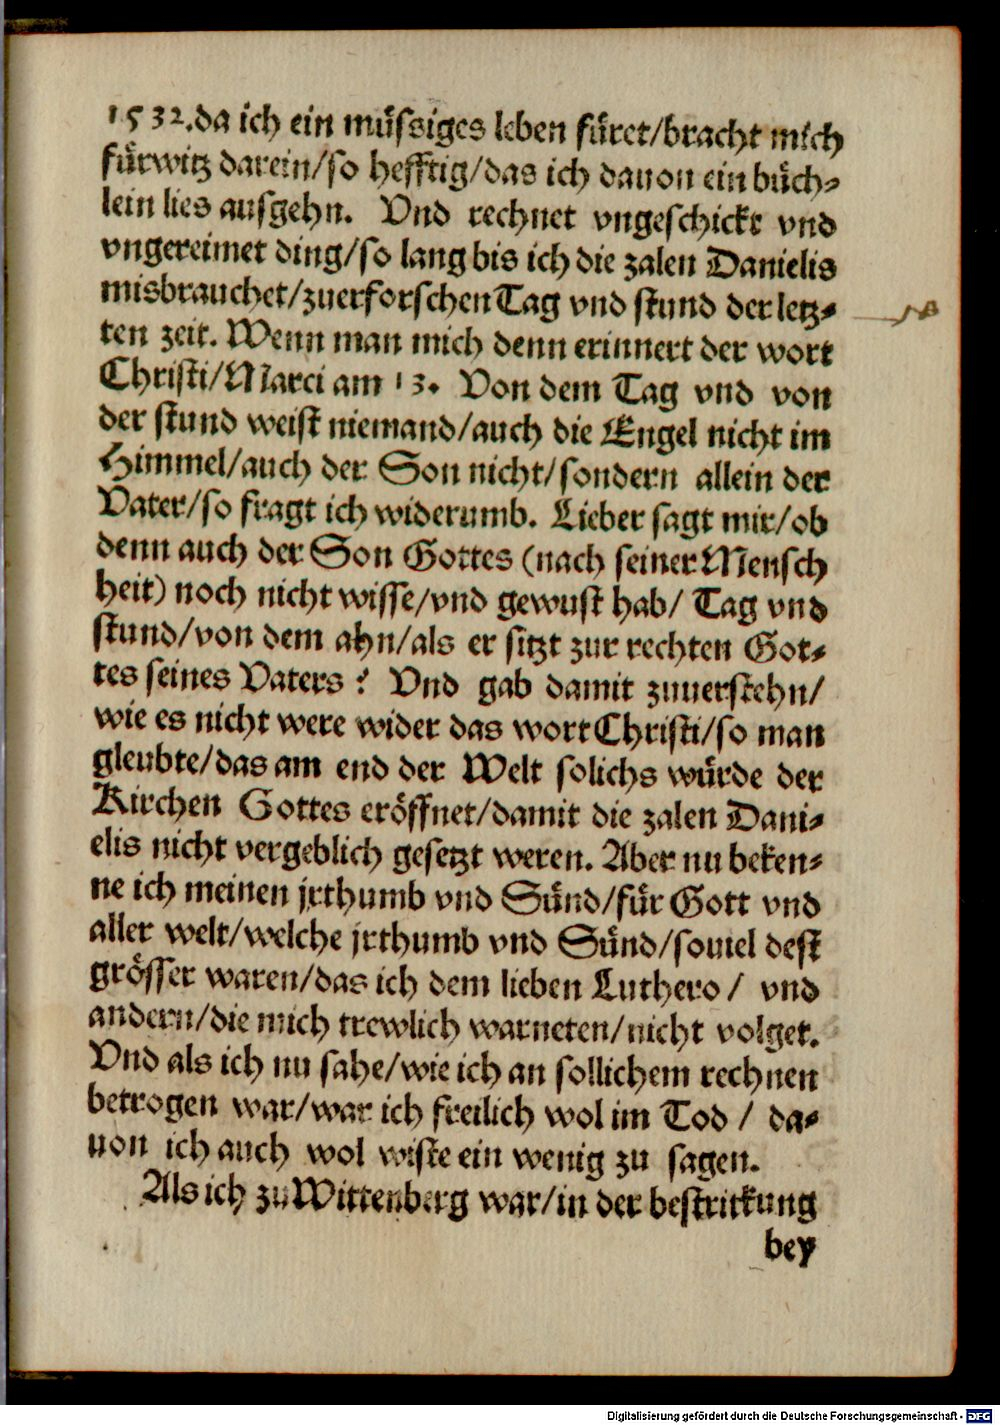 1532. da ich ein müſsiges leben füret/bracht mich
fürwitz darein/ſo hefftig/das ich dauon ein büch⸗
lein lies auſgehn. Vnd rechnet vngeſchickt vnd
vngereimet ding/ſo lang bis ich die zalen Danielis
misbrauchet/zuerforſchen Tag vnd ſtund der letz⸗
ten zeit. Wenn man mich denn erinnert der wort
Chriſti/Marci am 13. Von dem Tag vnd von
der ſtund weiſt niemand/auch die Engel nicht im
Himmel/auch der Son nicht/ſondern allein der
Vater/ſo fragt ich widerumb. Lieber ſagt mir/ob
denn auch der Son Gottes (nach ſeiner Menſch
heit) noch nicht wiſſe/vnd gewuſt hab/ Tag vnd
ſtund/von dem ahn/als er ſitzt zur rechten Got⸗
tes ſeines Vaters? Vnd gab damit zuuerſtehn/
wie es nicht were wider das wort Chriſti/ſo man
gleubte/das am end der Welt ſolichs würde der
Kirchen Gottes eröffnet/damit die zalen Dani⸗
elis nicht vergeblich geſetzt weren. Aber nu beken⸗
ne ich meinen jrthumb vnd Sünd/für Gott vnd
aller welt/welche jrthumb vnd Sünd/ſouiel deſt
gröſſer waren/das ich dem lieben Luthero/ vnd
andern/die mich trewlich warneten/nicht volget.
Vnd als ich nu ſahe/wie ich an ſollichem rechnen
betrogen war/war ich freilich wol im Tod / da⸗
uon ich auch wol wiſte ein wenig zu ſagen.
Als ich zu Wittenberg war/in der beſtrickung
bey
Digitalisierung gefördert durch die Deutsche Forschungsgemeinschaft - DFG